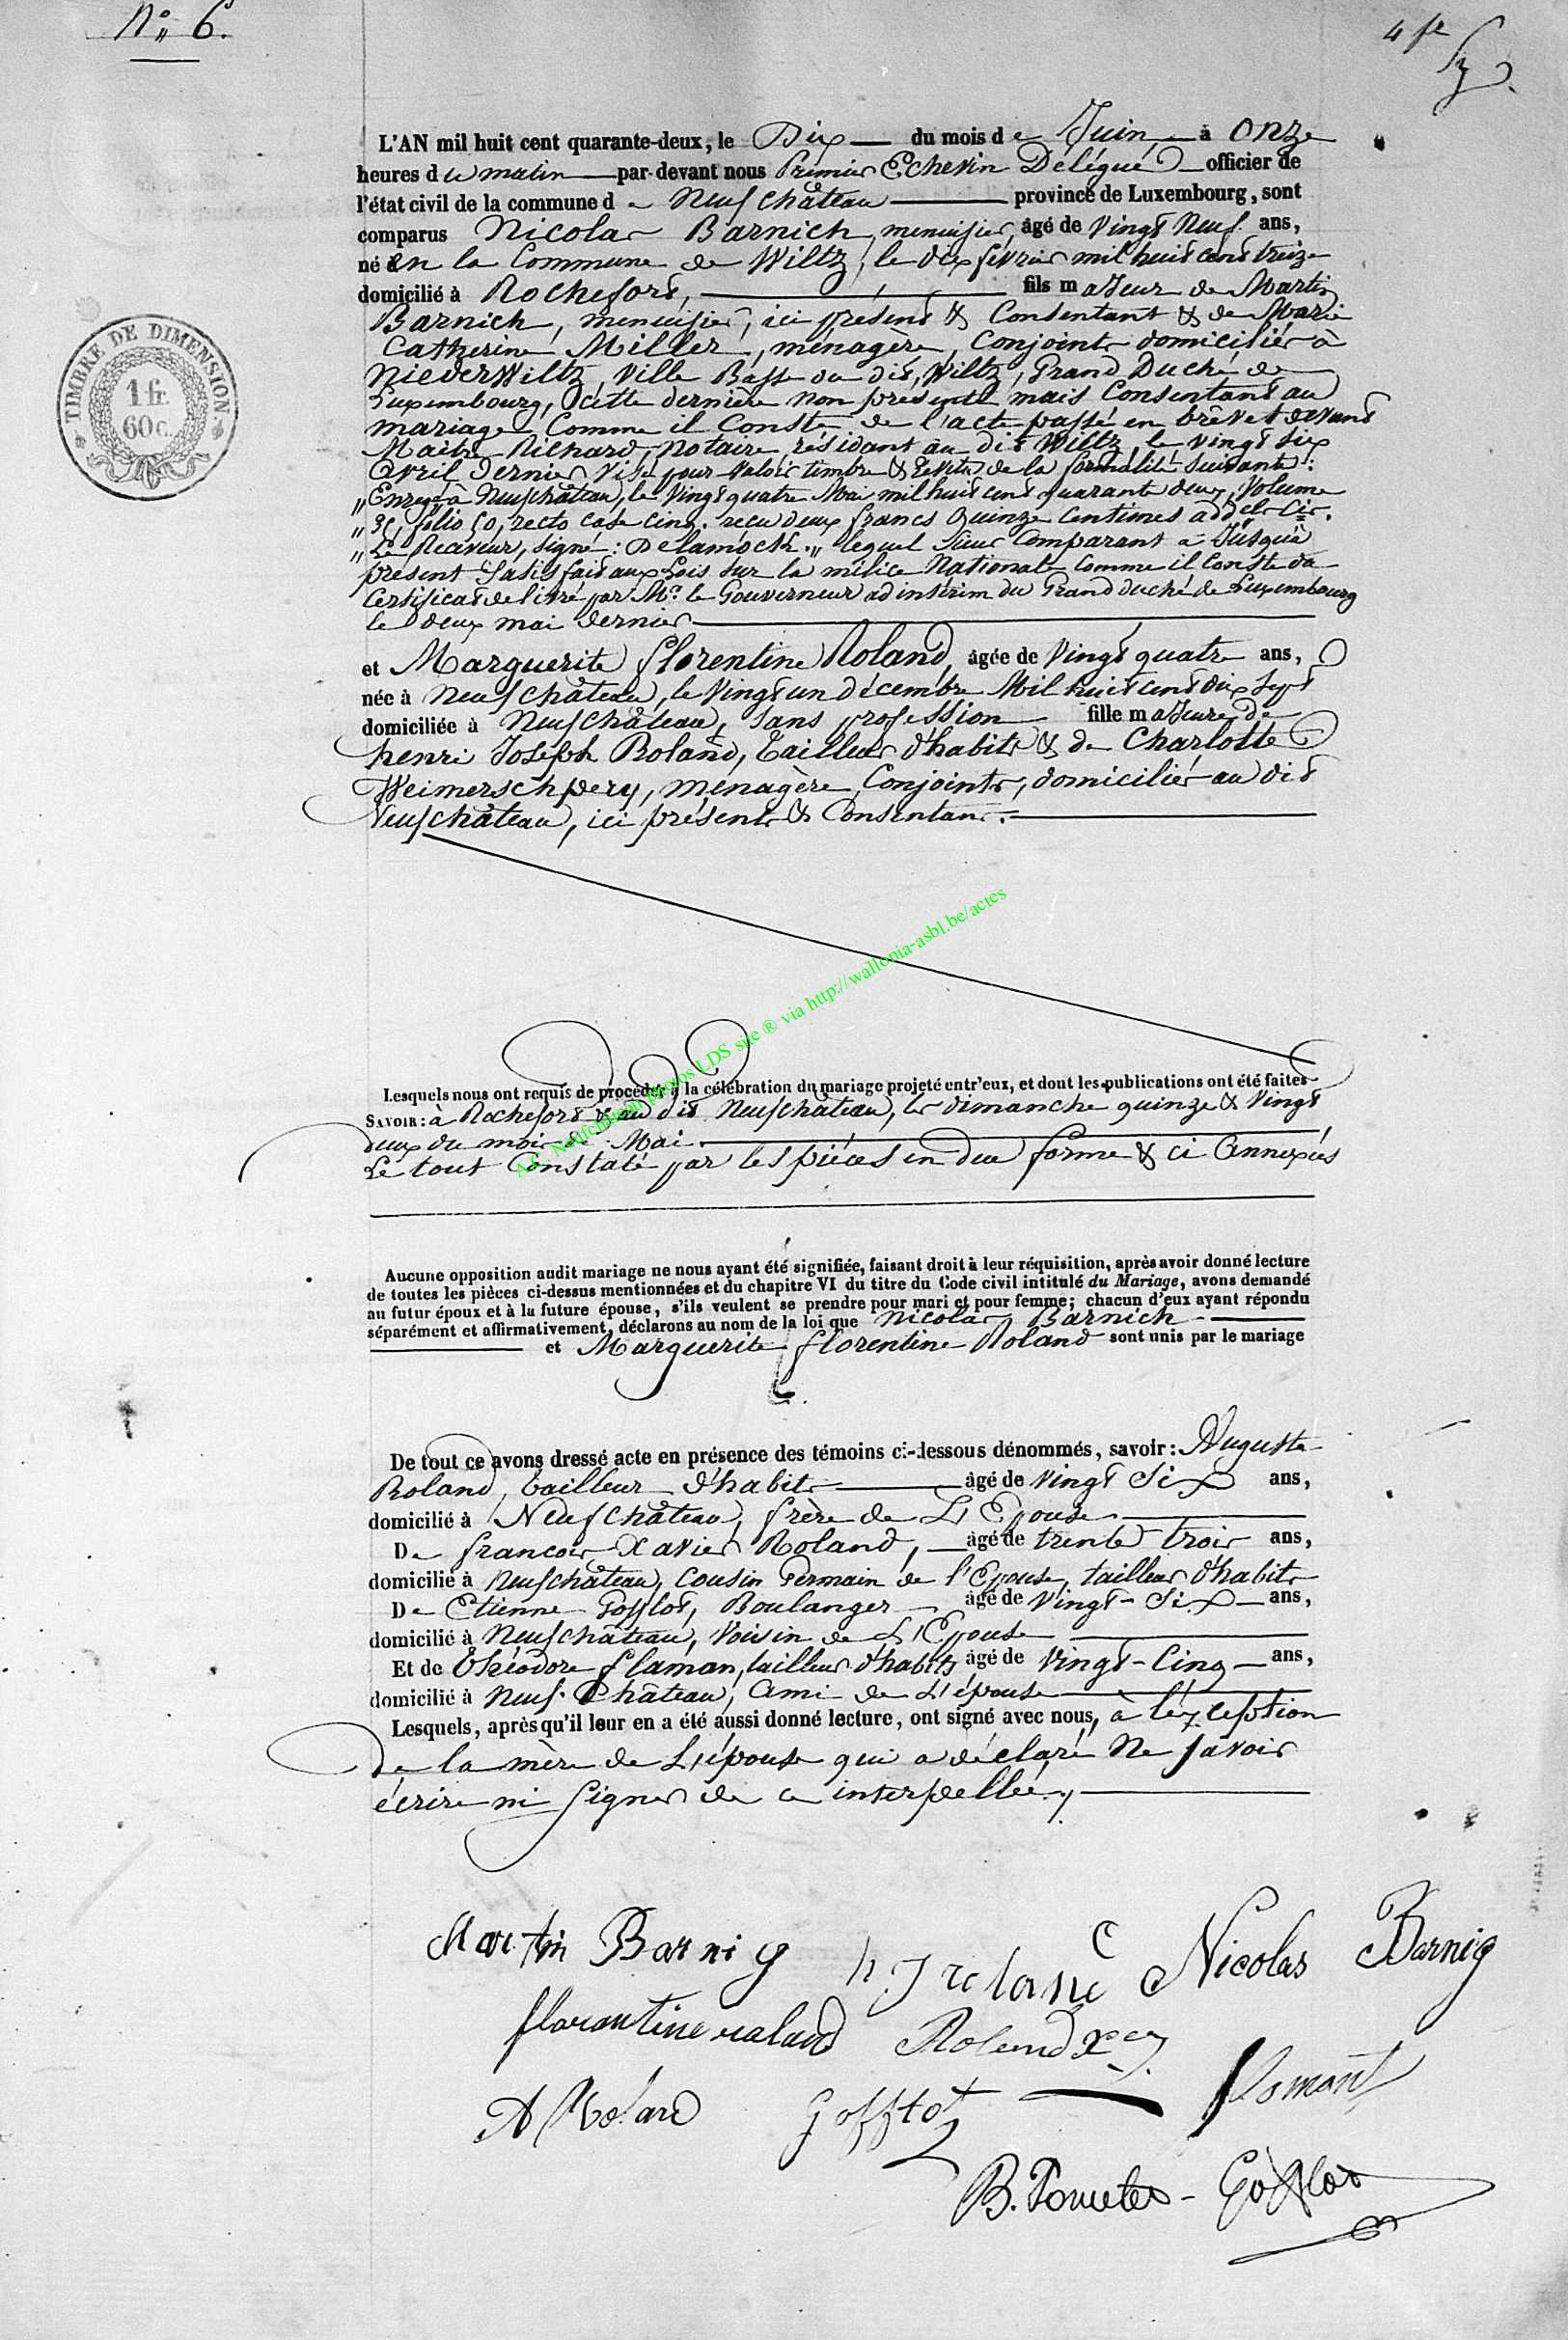 N° 6.
TIMBRE DE DIMENSION.
1 fr.
60 c.
L'AN mil huit cent quarante-deux, le Dix du mois de Juin, à onze
heures du matin par-devant nous Premier Echevin Délégué officier de
l'état civil de la commune de Neufchâteau province de Luxembourg, sont
comparus Nicolas Barnich, menuisier, âgé de vingt neuf ans,
né en la Commune de Wiltz, le dix février mil huit cent treize
domicilié à Rochefort, fils majeur de Martin
Barnich, menuisier, ici présent & Consentant & de Marie
Catherine Miller, ménagère, Conjoints domiciliés à
Niederwiltz, Ville Basse du dit Wiltz, Grand Duché de
Luxembourg, cette dernière non présente mais Consentant au
mariage Comme il Conste de l'acte passé en brêvet devant
Maître Richard, Notaire, résidant au dit Wiltz, le vingt six
Avril dernier, visé pour valoir timbre & revêtu de la formalité suivante:
„Enregé à Neufchâteau, le vingt quatre Mai mil huit cent quarante deux, Volume
„ folio 50, recto case cinq. reçu deux francs Quinze Centimes addels Cis.
„Le Receveur, signé: Delamock.„ lequel Sieur Comparant a Jusqu'à
présent Satisfait aux Lois Sur la milice Nationale Comme il Conste du
Certificat delivré par Mr. le Gouverneur ad intérim du Grand duché de Luxembourg
le deux mai dernier
et Marguerite florentine Roland, âgée de vingt quatre ans,
née à Neufchâteau, le vingt un décembre Mil huit cent dix sept
domiciliée à Neufchâteau, Sans profession fille majeure de
henri Joseph Roland, Tailleur d'habits & de Charlotte
Weimerschpery, ménagère, Conjoints, domiciliés au dit
Neufchâteau, ici présents & Consentans.
A.C. Neufchâteau photos LDS site ® via http://wallonia-asbl.be/actes
Lesquels nous ont requis de procéder à la célébration du mariage projeté entr'eux, et dont les publications ont été faites
SAVOIR: à Rochefort & au dit Neufchâteau, les dimanche quinze & vingt
deux du mois de Mai.
Le tout Constaté par les pièces en due forme & ci Annexées
Aucune opposition audit mariage ne nous ayant été signifiée, faisant droit à leur réquisition, après avoir donné lecture
de toutes les pièces ci-dessus mentionnées et du chapitre VI du titre du Code civil intitulé du Mariage, avons demandé
au futur époux et à la future épouse, s'ils veulent se prendre pour mari et pour femme; chacun d'eux ayant répondu
séparément et affirmativement, déclarons au nom de la loi que Nicolas Barnich
et Marguerite florentine Roland sont unis par le mariage
De tout ce avons dressé acte en présence des témoins ci-dessous dénommés, savoir: Auguste
Roland, tailleur d'habits âgé de vingt Six ans,
domicilié à Neufchâteau, frère de L'Epouse
De francois Xavier Roland, âgé de trente trois ans,
domicilié à Neufchâteau, Cousin Germain de l'Epouse, tailleur d'habits
De Etienne Gofflot, Boulanger âgé de vingt-Six ans,
domicilié à Neufchâteau, Voisin de L'Epouse
Et de théodore flaman, tailleur d'habits âgé de vingt-Cinq ans,
domicilié à Neuf-Château, Ami de L'épouse
Lesquels, après qu'il leur en a été aussi donné lecture, ont signé avec nous, à l'exception
de la mère de L'épouse qui a déclaré Ne savoir
écrire ni Signer de ce interpellée.
Martin Barnig h J roland Nicolas Barnig
florantine raland Roland Xer flamant
A Roland Gofflot
B. Poncelet-Gofflot